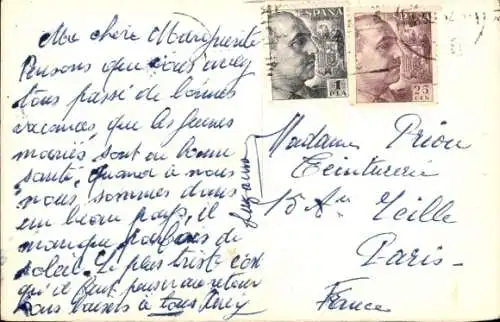 Ma chère Marguerite
Pensons que vous avez
tous passé de bonnes
vacances, que les jeunes
mariés sont en bonne
santé, quand à nous
nous sommes dans
un beau pays, il
manque parfois de
soleil. Le plus triste c'est
qu'il faut penser au retour
bons baisers à tous
Suzanne
ESPAÑA
1
PTA
ESPAÑA
25
CEN
Madame Prion
Teinturerie
15 Av. Reille
Paris
France